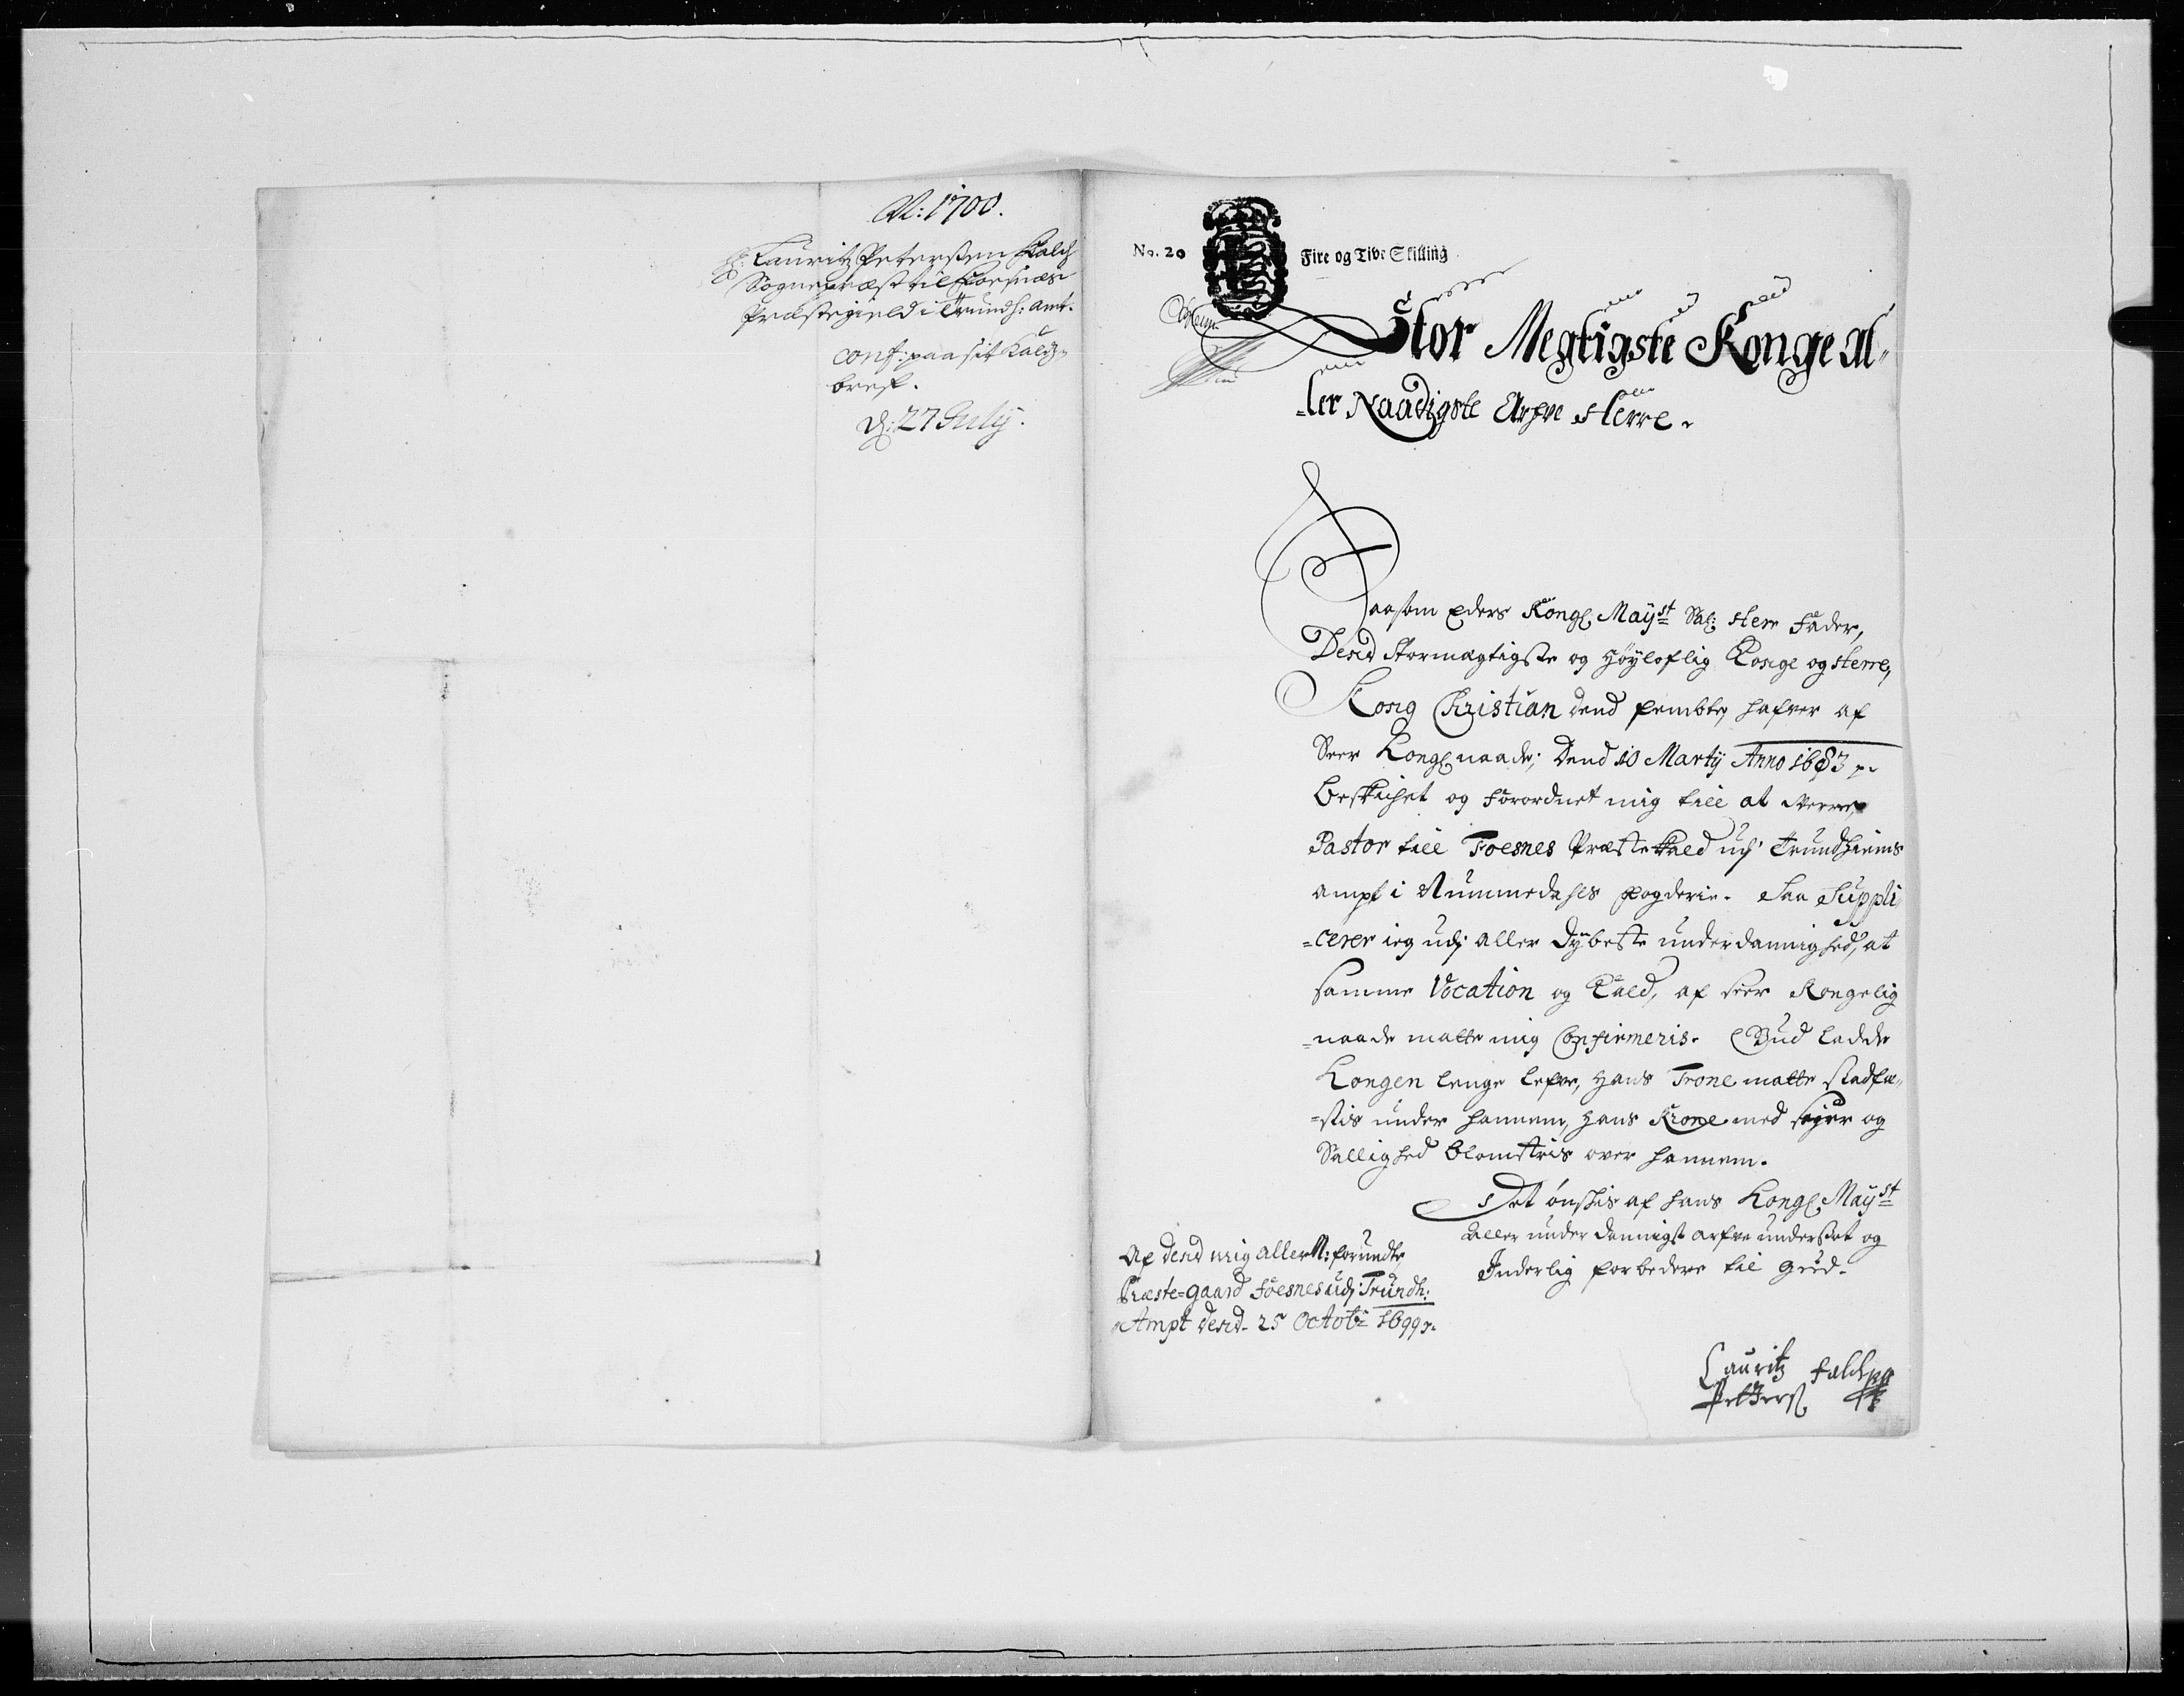 N: 1700.
H: Lauritz Peterssen Falch
Sognepræst til Foesnæs
Præstegield i Trundh: amt.
conf: paa sit Kalds-
breff.
d: 27 July.
No. 20 Fire og Tive Skilling
Stor Megtigste Konge Al-
-ler Naadigste Arfve Herre.
Saasom Eders Kongl. Mayst Sal: Herr Fader,
Dend Stormægtigste og Höyloflig Konge og Herre,
Kong Christian dend fembte, hafver af
Seer Kongl naade, Dend 10 Martij Anno 1683
beskichet og Forordnet mig till at være
Pastor till Foesnes Præstekald udj Trundhiems
ampt i Nummedahls fogderie. Saa Suppli-
-cerer ieg udj aller dybeste underdannighed, at
samme Vocation og Kald, af seer Kongelig
-naade motte mig Confirmeris. Gud lade
Kongen lenge lefve, Hans Trone motte stadfæ-
-stis under hannem, Hans Krone med seyer og
Sallighed blomstris over hannem.
Det ønskis af Hans Kongl. Mayst
Aller under dannigst arfve undersaat og
Inderlig forbedere til Gud.
Af dend mig aller N: forundte
Præste-gaard Foesnes udj Trundh:
Ampt dend. 25 Octobr 1699.
Lauritz Falch
Petters